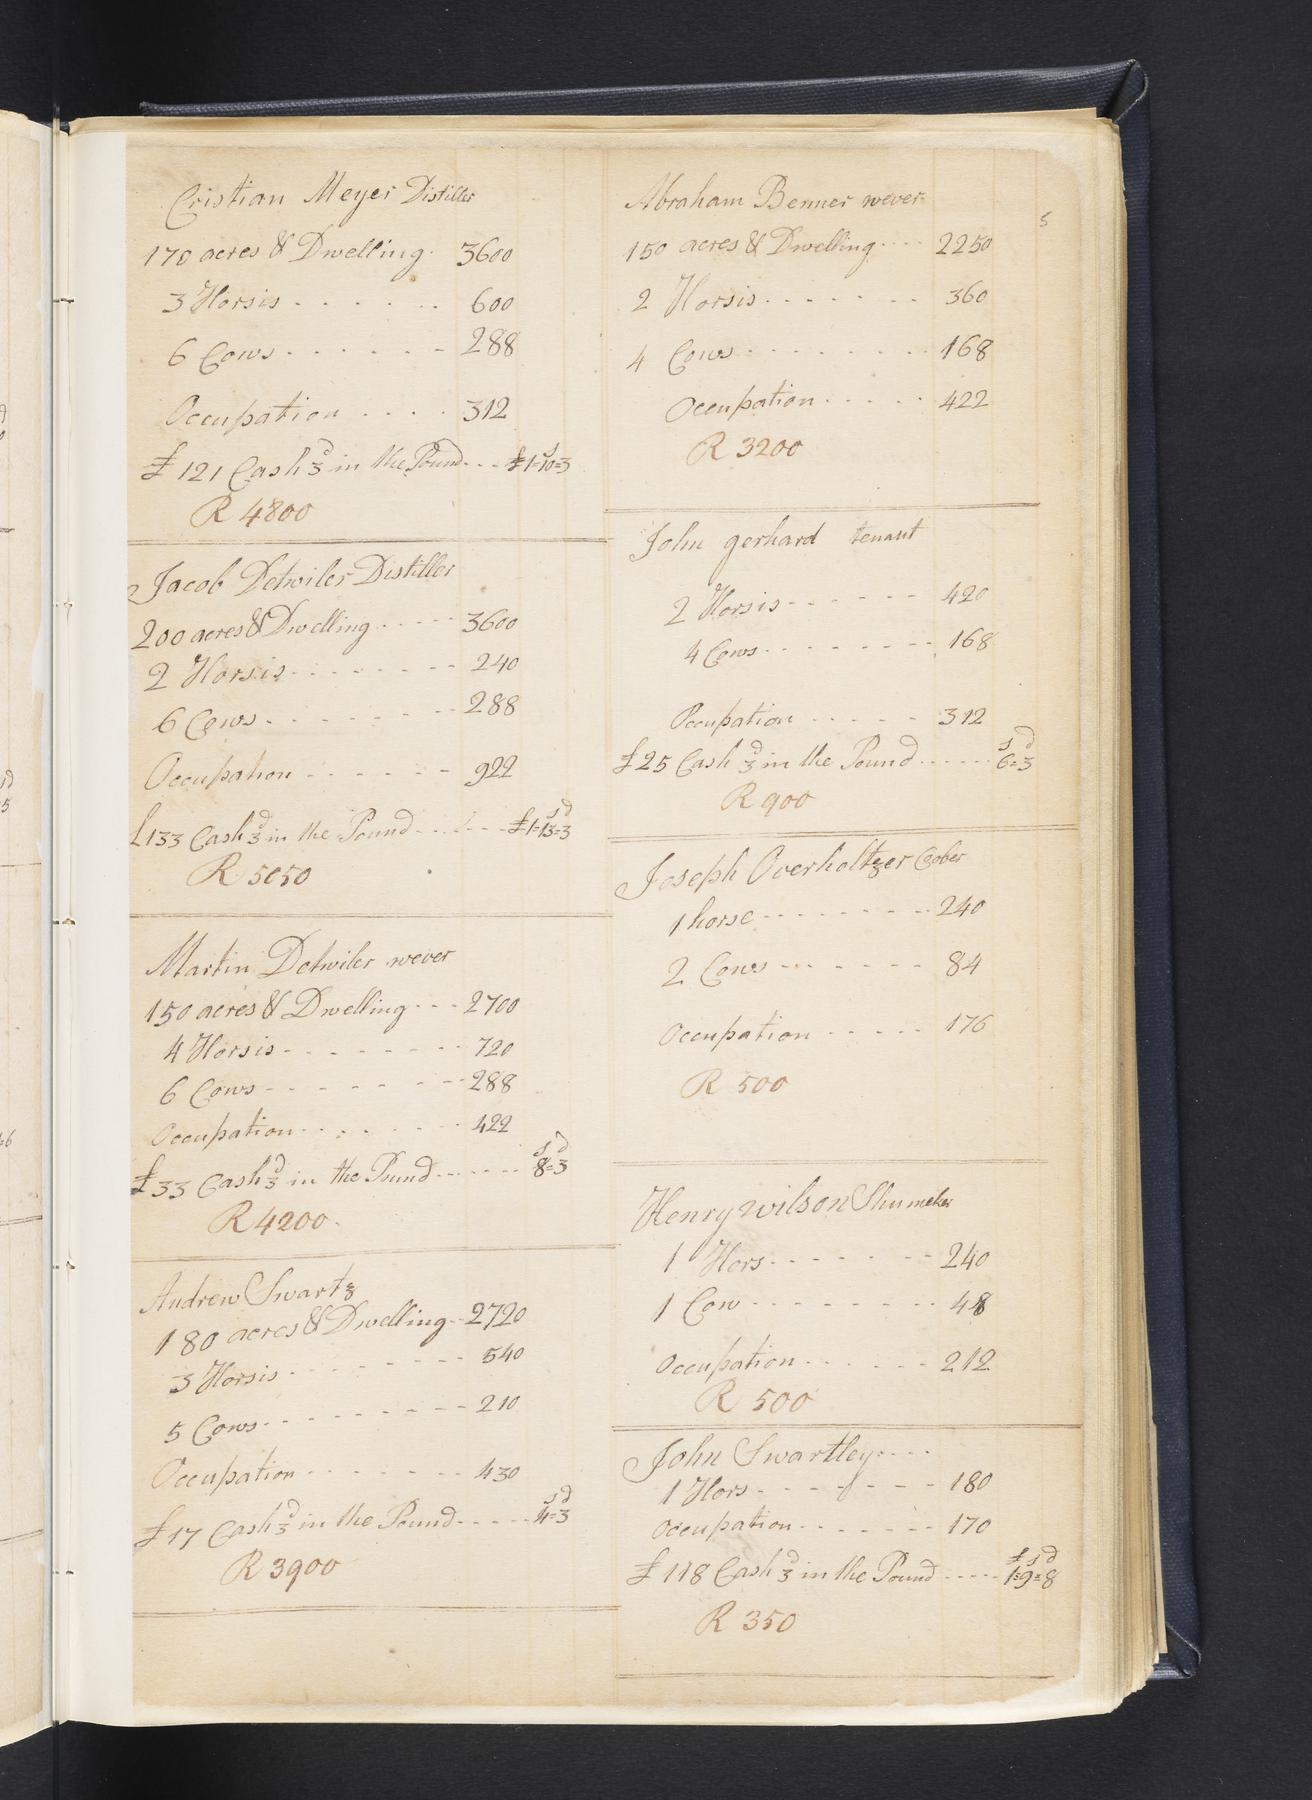 Cristian Meyer Distiller
170 acres & Dwelling. 3600
3 Horsis - - - - - - 600
6 Cows - - - - - - 288
Occupation - - - - 312
£121 Cash 3d in the Pound - - - £1=10s=3
R 4800
Jacob Detwiler Distiller
200 acres & Dwelling - - - - - 3600
2 Horsis - - - - - - - 240
6 Cows - - - - - - - 288
Occupation - - - - - - 922
£133 Cash 3d in the Pound - - - - - £1=13s=3d
R 5050
Martin Detwiler wever
150 acres & Dwelling - - - 2700
4 Horsis - - - - - - - 720
6 Cows - - - - - - - 288
Occupation - - - - - - - 422
£33 Cash 3d in the Pound - - - - - - 8s=3d
R 4200.
Andrew Swartz
180 acres & Dwelling - - 2720
3 Horsis - - - - - - - 540
5 Cows - - - - - - - - 210
Occupation - - - - - - - 430
£17 Cash 3d in the Pound - - - - - 4s=3d
R 3900
5
Abraham Benner wever
150 acres & Dwelling - - - - 2250
2 Horsis - - - - - - - 360
4 Cows - - - - - - - - 168
Occupation - - - - - 422
R 3200
John gerhard tenant
2 Horsis - - - - - - 420
4 Cows - - - - - - - - 168
Occupation - - - - - 312
£25 Cash 3d in the Pound - - - - - - 6s=3d
R 900
Joseph Overholtzer Cober
1 horse - - - - - - - - 240
2 Cows - - - - - - - 84
Occupation - - - - - 176
R 500
Henry wilson Shumeker
1 Hors - - - - - - - 240
1 Cow - - - - - - - - 48
Occupation - - - - - - 212
R 500
John Swartley - - - -
1 Hors - - - - - - - - 180
Occupation - - - - - - - 170
£118 Cash 3d in the Pound - - - - - £1=9s=8d
R 350